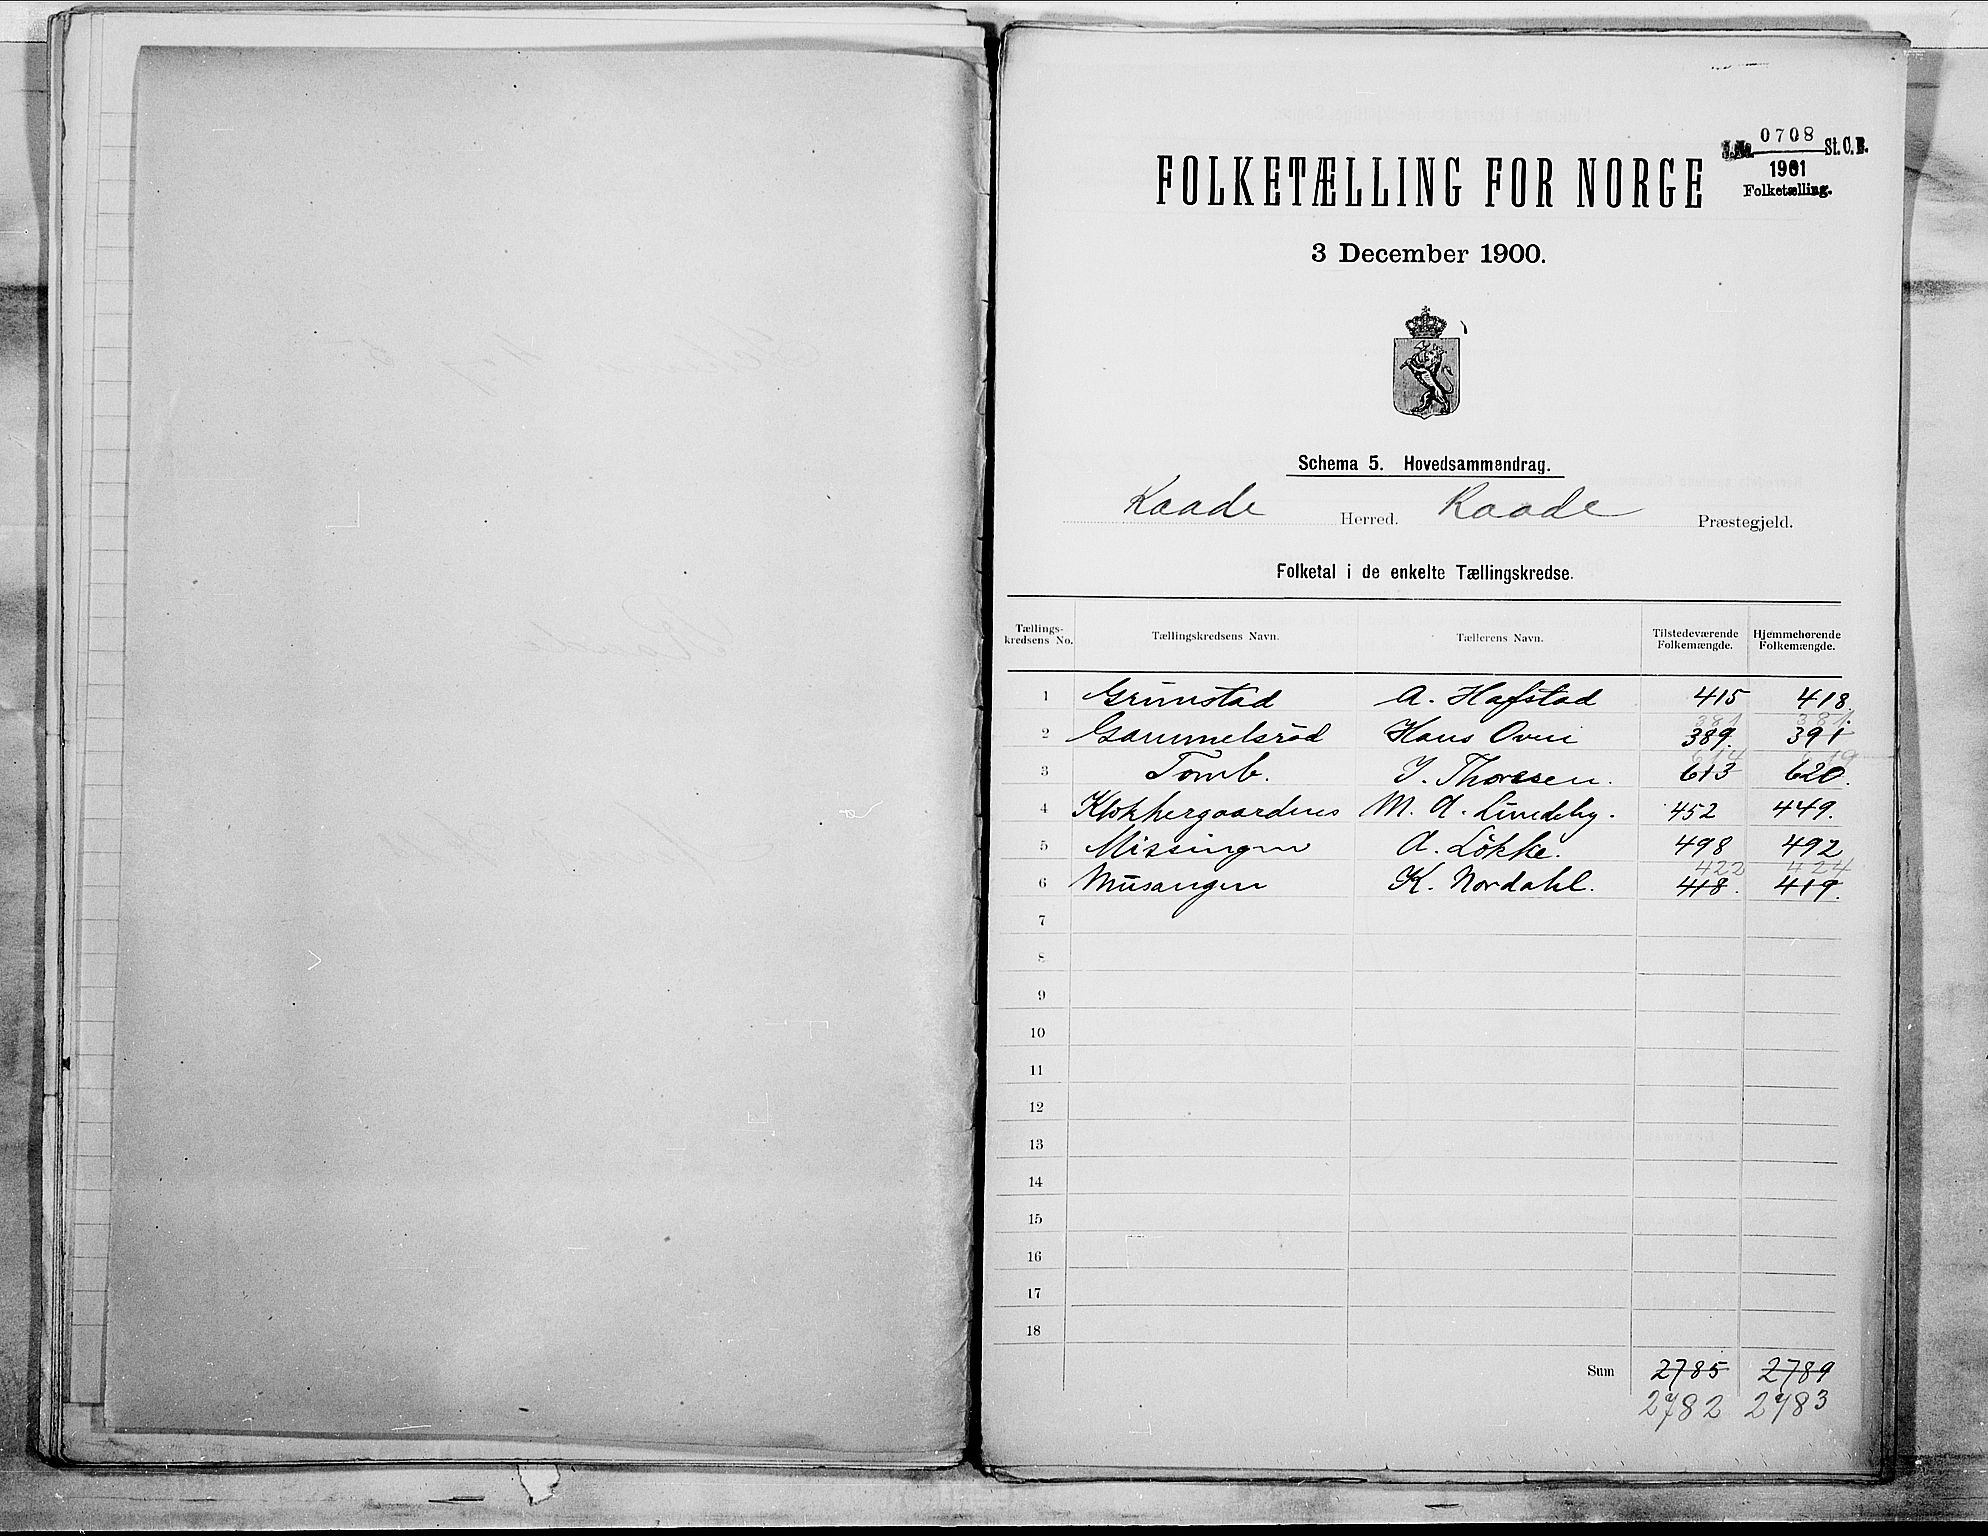 J.No. 0708 St.C.B.
1901
Folketælling.
FOLKETÆLLING FOR NORGE
3 December 1900.
Schema 5. Hovedsammendrag.
Raade Herred. Raade Præstegjeld.
Folketal i de enkelte Tællingskredse.
Tællings-kredsens No. Tællingskredsens Navn. Tællerens Navn. Tilstedeværende Folkemængde. Hjemmehørende Folkemængde.
1 Grimstad A. Hafstad 415 418
381 381
2 Gammelsrød Hans Oven 389 391
614 619
3 Tomb. J. Thoresen. 613 620.
4 Klokkergaardenes M. A. Lindeby. 452 449.
5 Missingen A. Løkke. 498 492
422 424
6 Musangen K. Nordahl. 418. 419.
7
8
9
10
11
12
13
14
15
16
17
18
Sum 2785 2789
2782 2783